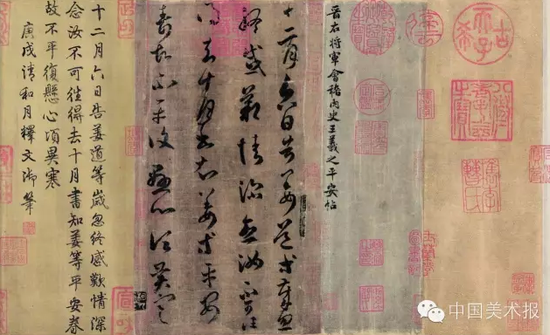 古希天子
八徵耄念之寶
晉右將軍會稽內史王羲之平安帖
十二月六日告姜道等歲忽
終感歎情深念汝不可往
得去十月書知姜等平安
眷故不平復懸心頃異寒
十二月六日告姜道等歲忽終感歎情深
念汝不可往得去十月書知姜等平安眷
故不平復懸心頃異寒
庚戌清和月釋文御筆
中国美术报